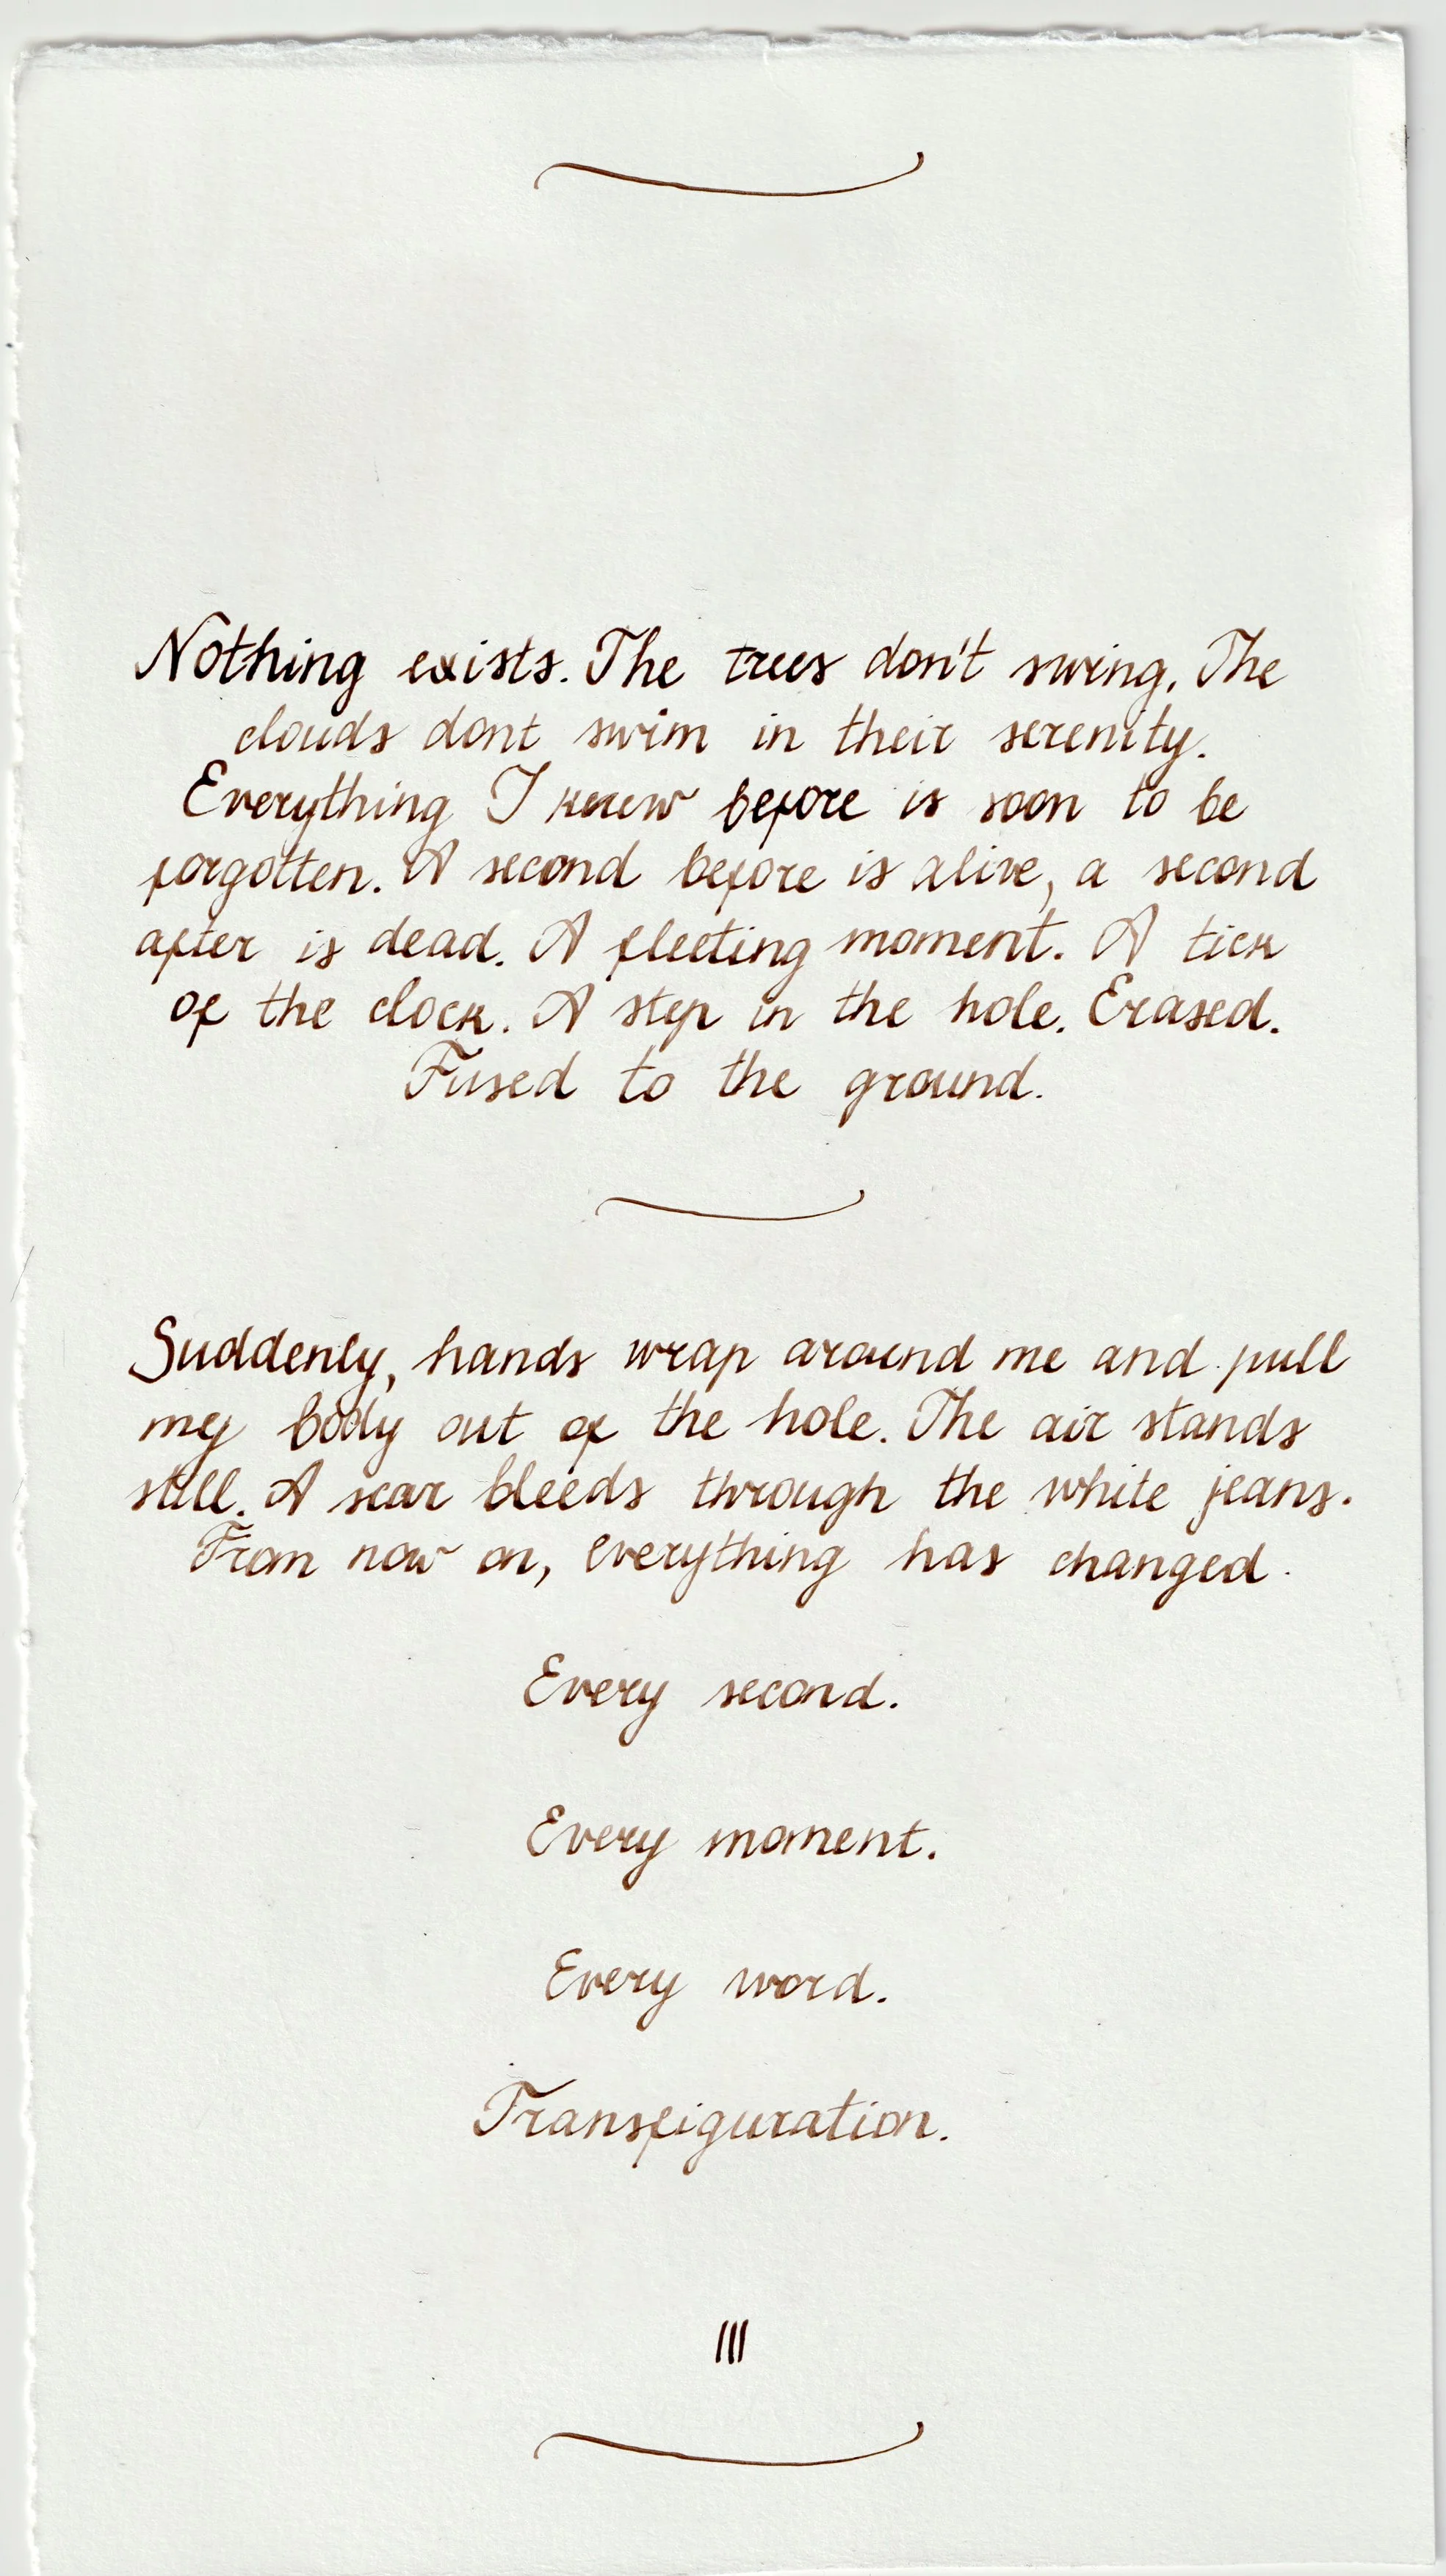 Nothing exists. The trees don't swing. The
clouds dont swim in their serenity.
Everything I knew before is soon to be
forgotten. A second before is alive, a second
after is dead. A fleeting moment. A tick
of the clock. A step in the hole. Erased.
Fused to the ground.
Suddenly, hands wrap around me and pull
my body out of the hole. The air stands
still. A scar bleeds through the white jeans.
From now on, everything has changed.
Every second.
Every moment.
Every word.
Transfiguration.
III